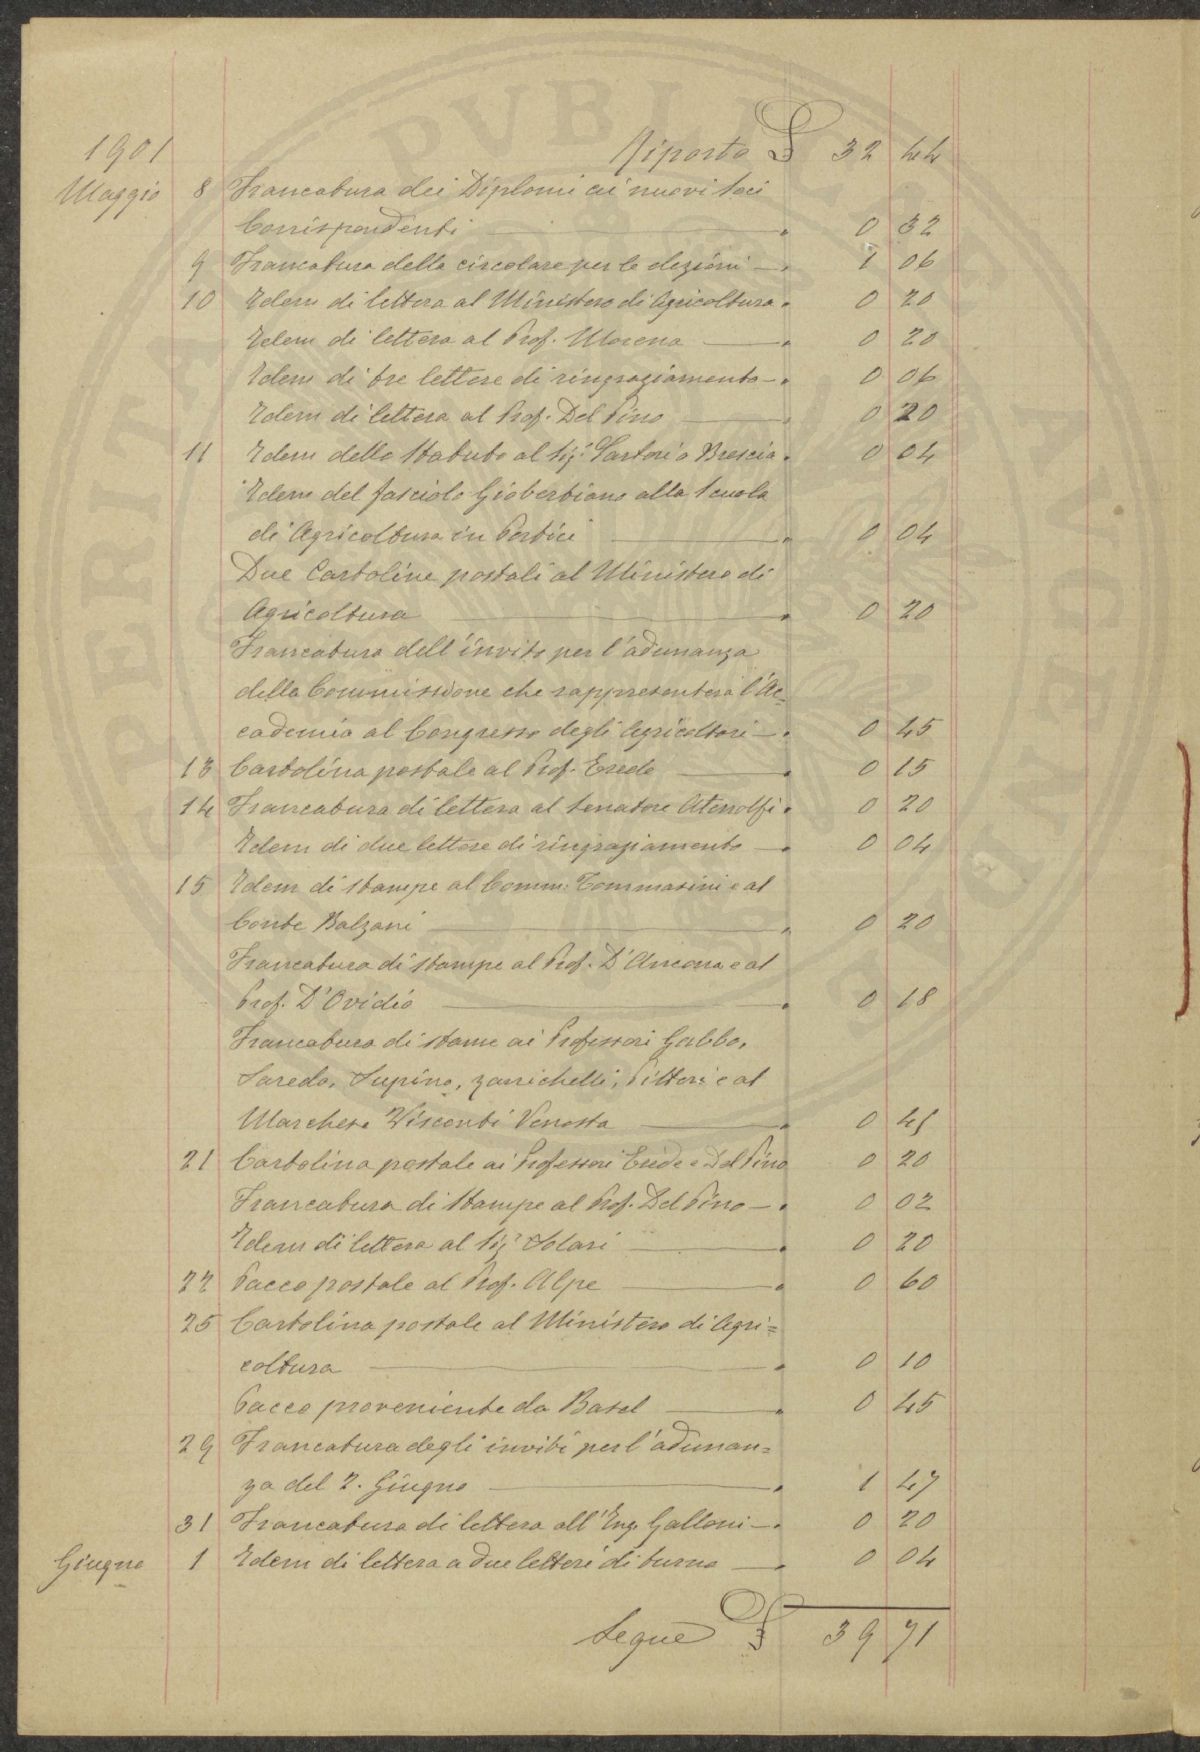 1901 Riporto £ 32 44
Maggio 8 Francatura dei Diplomi ai nuovi Soci
Corrispondenti " 0 32
9 Francatura della circolare per le elezioni " 1 06
10 Idem di lettera al Ministero di Agricoltura " 0 20
Idem di lettera al Prof. Morena " 0 20
Idem di tre lettere di ringraziamento " 0 06
Idem di lettera al Prof. Del Pino " 0 20
11 Idem dello Statuto al Sigr Sartori a Brescia " 0 04
Idem del fasciolo Giobertiano alla Scuola
di Agricoltura in Portici " 0 04
Due Cartoline postali al Ministero di
Agricoltura " 0 20
Francatura dell'invito per l'adunanza
della Commissione che rappresenterà l'Ac=
cademia al Congresso degli Agricoltori " 0 45
13 Cartolina postale al Prof. Erede " 0 15
14 Francatura di lettera al Senatore Atenolfi " 0 20
Idem di due lettere di ringraziamento " 0 04
15 Idem di stampe al Comm: Tommasini e al
Conte Balzani " 0 20
Francatura di stampe al Prof. D'Ancona e al
Prof. D'Ovidio " 0 18
Francatura di stame ai Professori Gabba,
Saredo, Supino, Zanichelli, Pittori e al
Marchese Visconti Venosta " 0 45
21 Cartolina postale ai Professori Erede e Del Pino 0 20
Francatura di Stampe al Prof. Del Pino " 0 02
Idem di lettera al Sigr Solari " 0 20
22 Pacco postale al Prof. Alpe " 0 60
25 Cartolina postale al Ministero di Agri=
coltura " 0 10
Pacco proveniente da Basel " 0 45
29 Francatura degli inviti per l'adunan=
za del 2. Giugno " 1 47
31 Francatura di lettera all'Ing. Galloni " 0 20
Giugno 1 Idem di lettera a due lettere di turno " 0 04
Segue £ 39 71